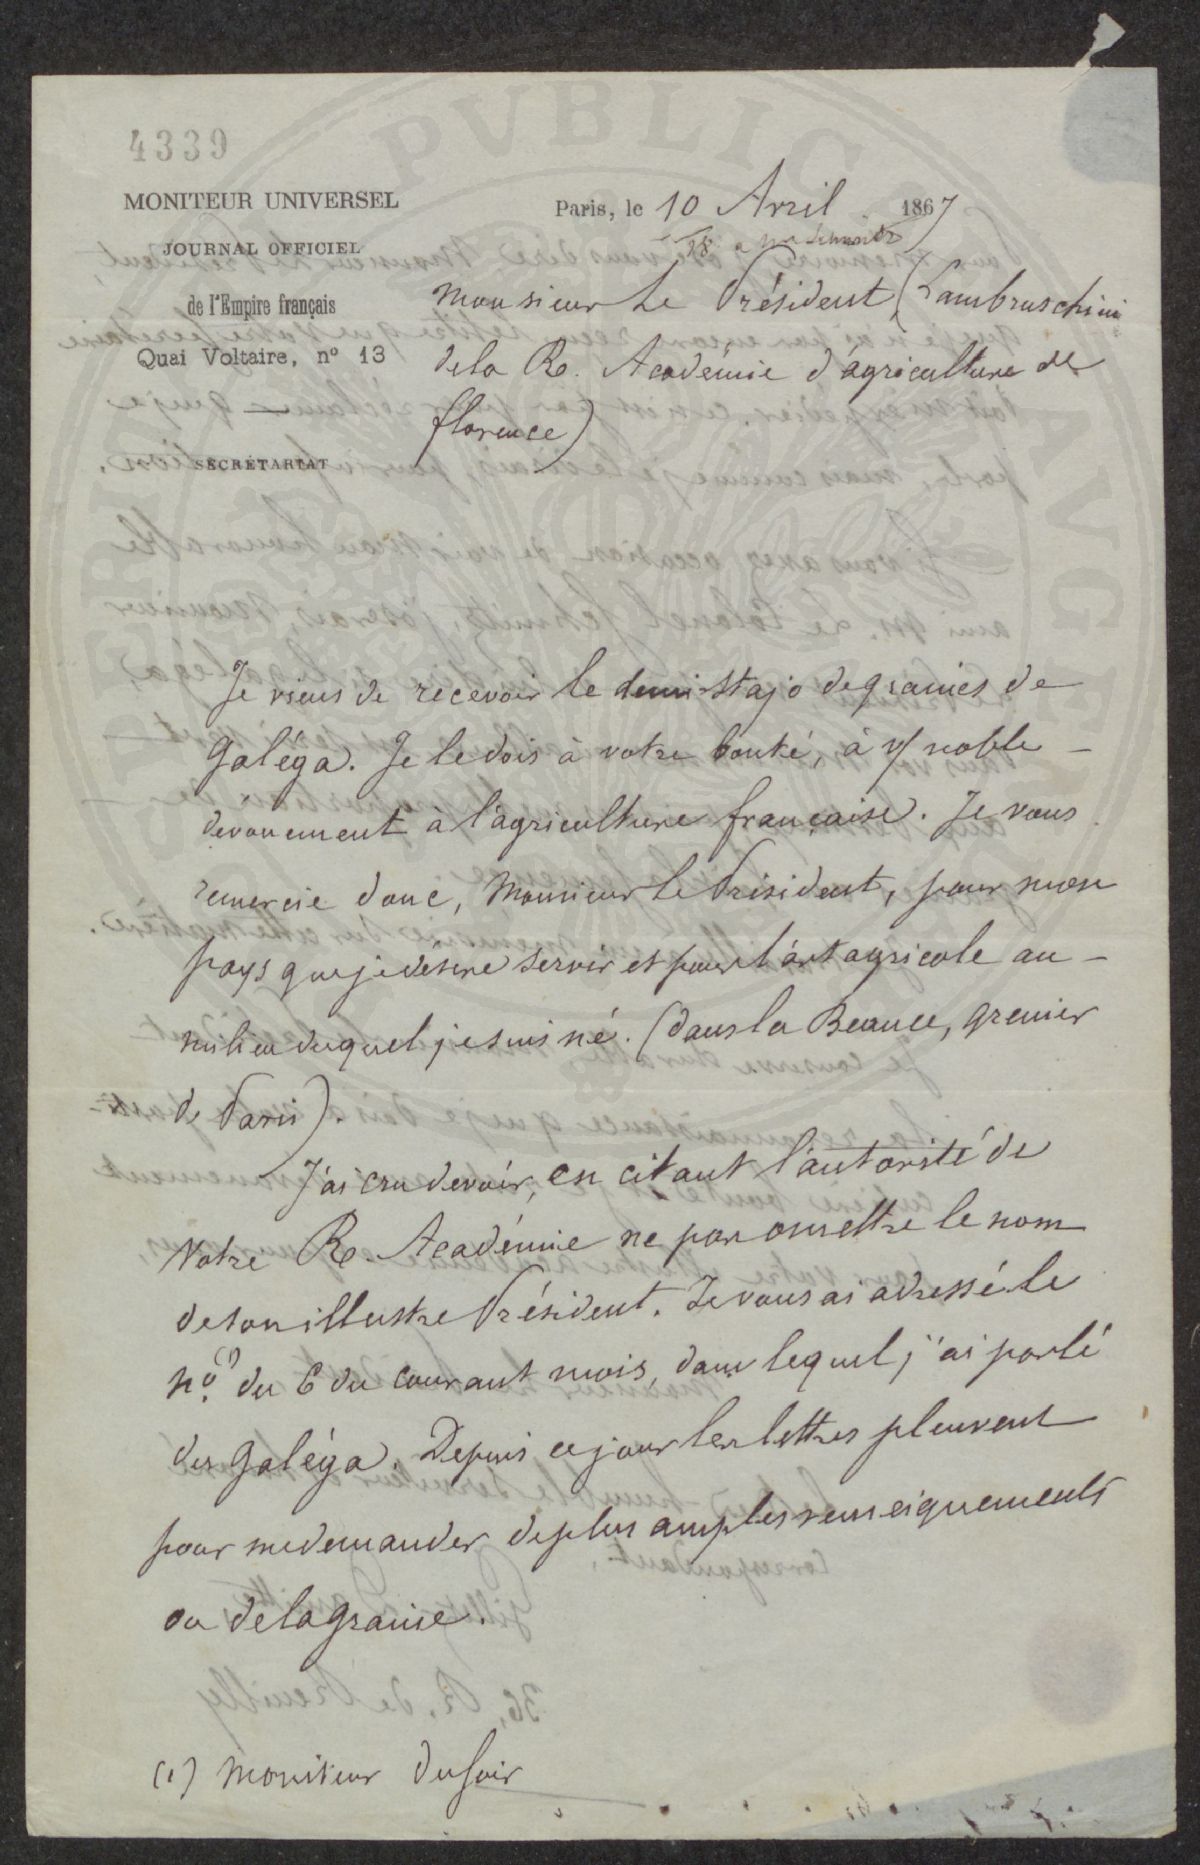 4339
MONITEUR UNIVERSEL
JOURNAL OFFICIEL
de l'Empire français
Quai Voltaire, nº 13
SECRÉTARIAT
Paris, le 10 Avril 1867
Monsieur Le Président (Lambruschini
de la R. Académie d'agriculture de
florence)
Je viens de recevoir le demi-Stajo de graines de
Galéga. Je le dois à votre bonté, à v/ noble
dévouement à l'agriculture française. Je vous
remercie donc, Monsieur Le Président, pour mon
pays que je désire servir et pour l'art agricole au
milieu duquel je suis né. (dans la Beauce, grenier
de Paris).
J'ai cru devoir, en citant l'autorité de
Votre R. Académie ne pas omettre le nom
de son illustre Président. Je vous ai adressé le
nº. (1) du 6 du courant mois, dans lequel j'ai parlé
du Galéga. Depuis ce jour les lettres pleuvent
pour me demander de plus amples renseignements
ou de la graine.
(1) Moniteur du Soir